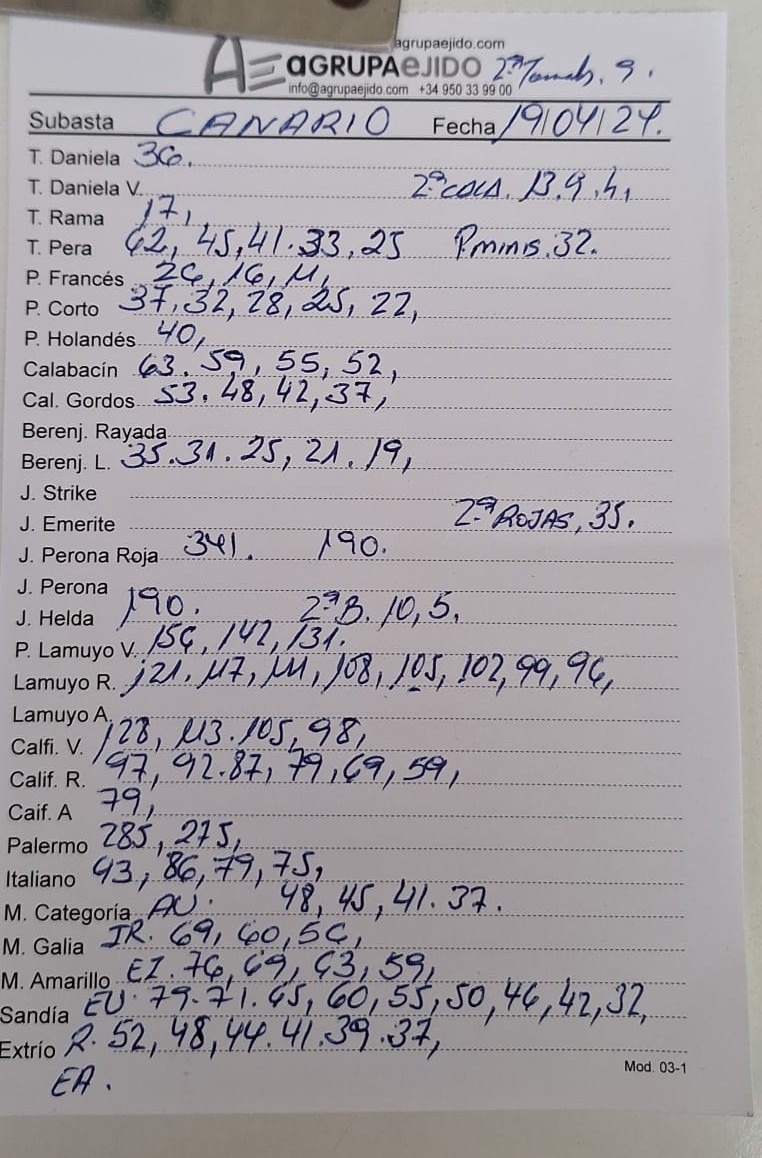 agrupaejido.com
AE aGRUPAeJIDO 2ª Tomats. 9.
info@agrupaejido.com +34 950 33 99 00
Subasta CANARIO Fecha 19/04/24.
T. Daniela 36.
T. Daniela V. 2ª COLA. 13.9.4,
T. Rama 17,
T. Pera 62, 45, 41. 33, 25 P minis. 32.
P. Francés 26, 16, 11,
P. Corto 37, 32, 28, 25, 22,
P. Holandés 40,
Calabacín 63. 59, 55, 52,
Cal. Gordos 53. 48, 42, 37,
Berenj. Rayada
Berenj. L. 35. 31. 25, 21. 19,
J. Strike
J. Emerite 2ª ROJAS, 35.
J. Perona Roja 341. 190.
J. Perona
J. Helda 190. 2ª B. 10, 5,
P. Lamuyo V. 156, 142, 131.
Lamuyo R. 121, 117, 111, 108, 105, 102, 99, 96,
Lamuyo A.
Calfi. V. 128, 113. 105, 98,
Calif. R. 97, 92. 87, 79, 69, 59,
Caif. A 79,
Palermo 285, 275,
Italiano 93, 86, 79, 75,
M. Categoría AU. 48, 45, 41. 37.
M. Galia IR. 69, 60, 56,
M. Amarillo EI. 76, 69, 63, 59,
Sandía EU. 79. 71. 65, 60, 55, 50, 46, 42, 32,
Extrío R. 52, 48, 44. 41. 39. 37,
EA.
Mod. 03-1